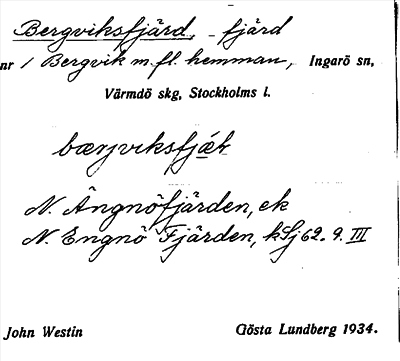 Bergviksfjärd, fjärd
nr 1 Bergvik m.fl. hemman, Ingarö sn,
Värmdö skg, Stockholms l.
bærjviksfjǽ̣ḥ
N. Ängnöfjärden, ek
N. Engnö Fjärden, kSj 62. 9. III
John Westin Gösta Lundberg 1934.